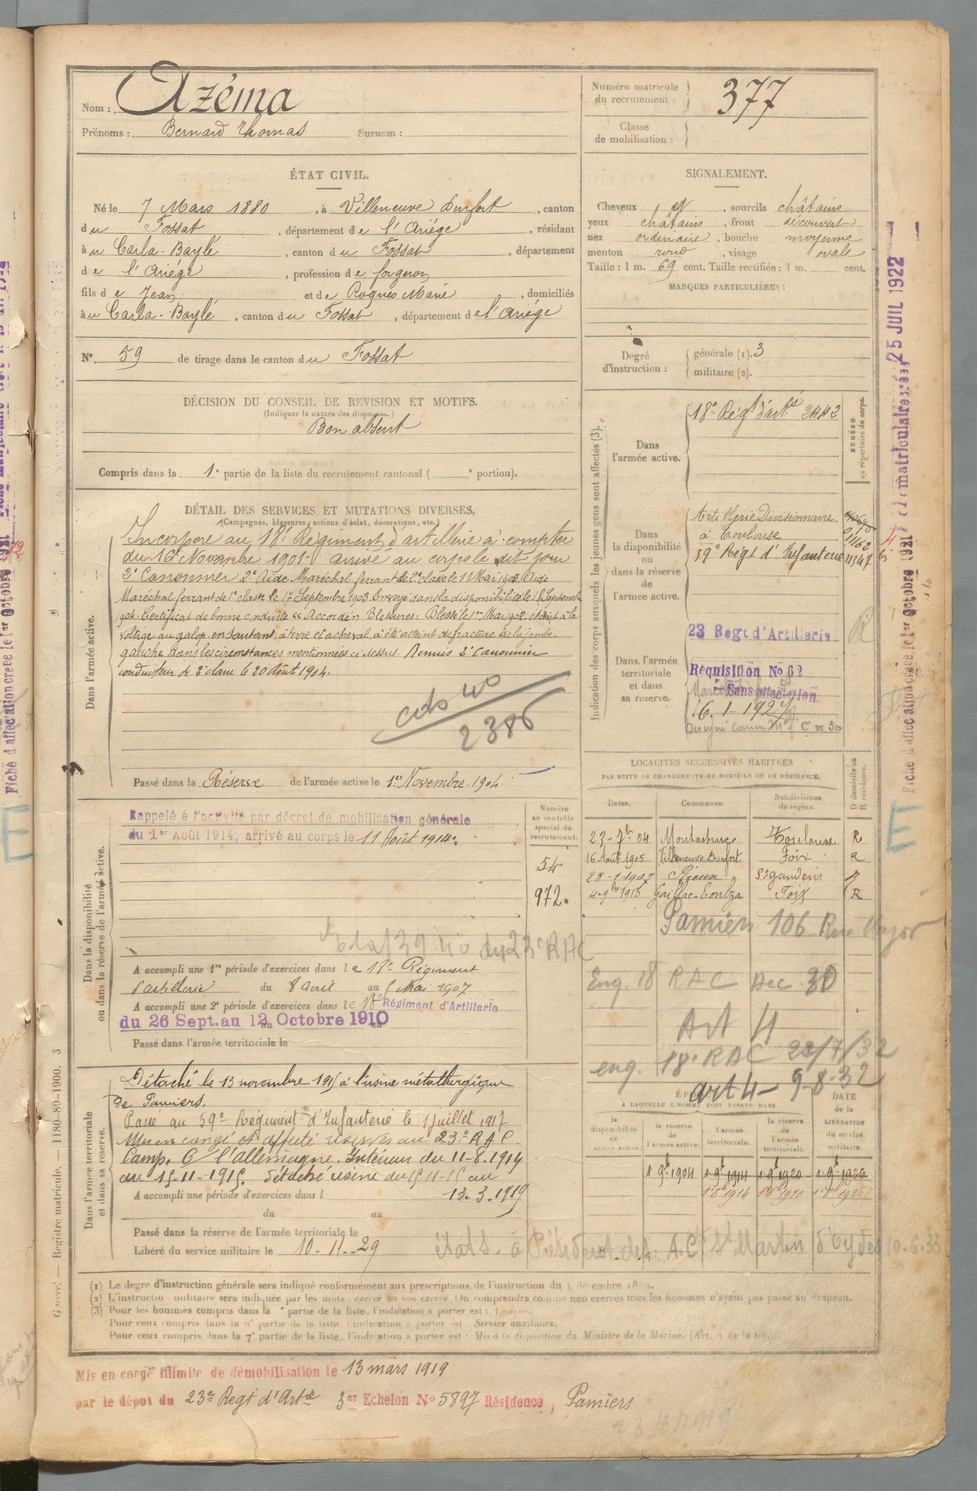 Nom : Azéma
Prénoms : Bernard Thomas Surnom :
Numéro matricule du recrutement : 377
Classe de mobilisation :
ÉTAT CIVIL.
Né le 7 Mars 1880, à Villeneuve Durfort, canton
du Fossat, département de l'Ariège, résidant
à u Carla-Bayle, canton du Fossat, département
de l'Ariège, profession de forgeron
fils de Jean et de Roques Marie, domiciliés
à u Carla-Bayle, canton du Fossat, département de l'Ariège
SIGNALEMENT.
Cheveux et sourcils châtains
yeux châtains, front découvert
nez ordinaire, bouche moyenne
menton rond, visage ovale
Taille : 1 m. 69 cent. Taille rectifiée : 1 m. cent.
MARQUES PARTICULIÈRES :
N° 59 de tirage dans le canton du Fossat
Degré d'instruction : générale (1). 3
militaire (2).
DÉCISION DU CONSEIL DE REVISION ET MOTIFS.
(Indiquer la nature des dispenses.)
Bon absent
Compris dans la 1e partie de la liste du recrutement cantonal ( e portion).
DÉTAIL DES SERVICES ET MUTATIONS DIVERSES.
(Campagnes, blessures, actions d'éclat, décorations, etc.)
Dans l'armée active.
Incorporé au 18e Régiment d'artillerie à compter
du 16 Novembre 1901 arrivé au corps le dit jour
2e Canonnier 2e Aide Maréchal ferrant de 2e classe le 1 Mai 1903 Aide
Maréchal ferrant de 1e classe le 17 Septembre 1903. Envoyé dans la disponibilité le 18 Septembre
1904. Certificat de bonne conduite "Accordé". Blessures : Blessé le 1er Mai 1902 étant à la
voltige au galop, en sautant à terre et à cheval, a été atteint de fracture de la jambe
gauche dans les circonstances mentionnées ci-dessus. Remis 2e Canonnier
conducteur de 2e classe le 20 Août 1904.
2386
Passé dans la Réserve de l'armée active le 1er Novembre 1904
Indication des corps auxquels les jeunes gens sont affectés (3).
NUMÉRO au répertoire du corps.
Dans l'armée active.
18e Régt d'artie 2442
Dans la disponibilité ou dans la réserve de l'armée active.
Artillerie Divisionnaire
à Toulouse
59e Régt d'Infanterie
Dans l'armée territoriale et dans sa réserve.
23 Regt d'Artillerie
Réquisition No 62
Sans affectation
LOCALITÉS SUCCESSIVES HABITÉES
PAR SUITE DE CHANGEMENTS DE DOMICILE OU DE RÉSIDENCE.
Dates. Communes. Subdivisions de région. D domicile ou R résidence.
23-7bre 04 Toulouse R
16 Août 1905 Villeneuve Durfort Foix R
22-1-1907 Rieux St gaudens R
4-9bre 1915 Gaillac-Toulza Foix R
Pamiers 106 Rue Major
Eng. 18 RAC Dec. 30
Art 4
eng. 18e RAC 22/7/32
art 4 - 9-8-32
Dans la disponibilité ou dans la réserve de l'armée active.
Numéro au contrôle spécial du recrutement.
Rappelé à l'activité par décret de mobilisation générale
du 1er Août 1914, arrivé au corps le 11 Août 1914.
54
972.
A accompli une 1re période d'exercices dans le 18e Régiment
d'artillerie du 8 avril au 5 Mai 1907
A accompli une 2e période d'exercices dans le 18e Régiment d'Artillerie
du 26 Sept. au 12 Octobre 1910
Passé dans l'armée territoriale le
Dans l'armée territoriale et dans sa réserve.
Détaché le 13 novembre 1915 à l'usine métallurgique
de Pamiers.
Passé au 59e Régiment d'Infanterie le 1 juillet 1917
Mis en congé et affecté réserves au 23e RAC
Camp. C/ l'Allemagne. Intérieur du 11-8.1914
au 15-11-1915. Détaché usine du 15-11-15 au
13.3.1919
A accompli une période d'exercices dans l
du au
Passé dans la réserve de l'armée territoriale le
Libéré du service militaire le 10-11-29
A LAQUELLE L'HOMME DOIT PASSER DANS
la disponibilité de l'armée active. la réserve de l'armée active. l'armée territoriale. la réserve de l'armée territoriale. DATE de la LIBÉRATION du service militaire.
1 9bre 1904
(1) Le degré d'instruction générale sera indiqué conformément aux prescriptions de l'instruction du
(2) L'instruction militaire sera indiquée par les mots : exercé ou non exercé. On comprendra comme non exercés tous les hommes n'ayant pas passé au drapeau.
(3) Pour les hommes compris dans la e partie de la liste, l'indication à porter est :
Pour ceux compris dans la 5e partie de la liste, l'indication à porter est : Service auxiliaire.
Pour ceux compris dans la 7e partie de la liste, l'indication à porter est : Mis à la disposition du Ministre de la Marine.
Mis en congé illimité de démobilisation le 13 mars 1919
par le dépot du 23e Regt d'Artie 3er Echelon No 5897 Résidence, Pamiers
Registre matricule. — 1180-89-1900. 3
25 JUIL 1922
Fiche d'affectation créée le 1er Octobre 1921
E
E